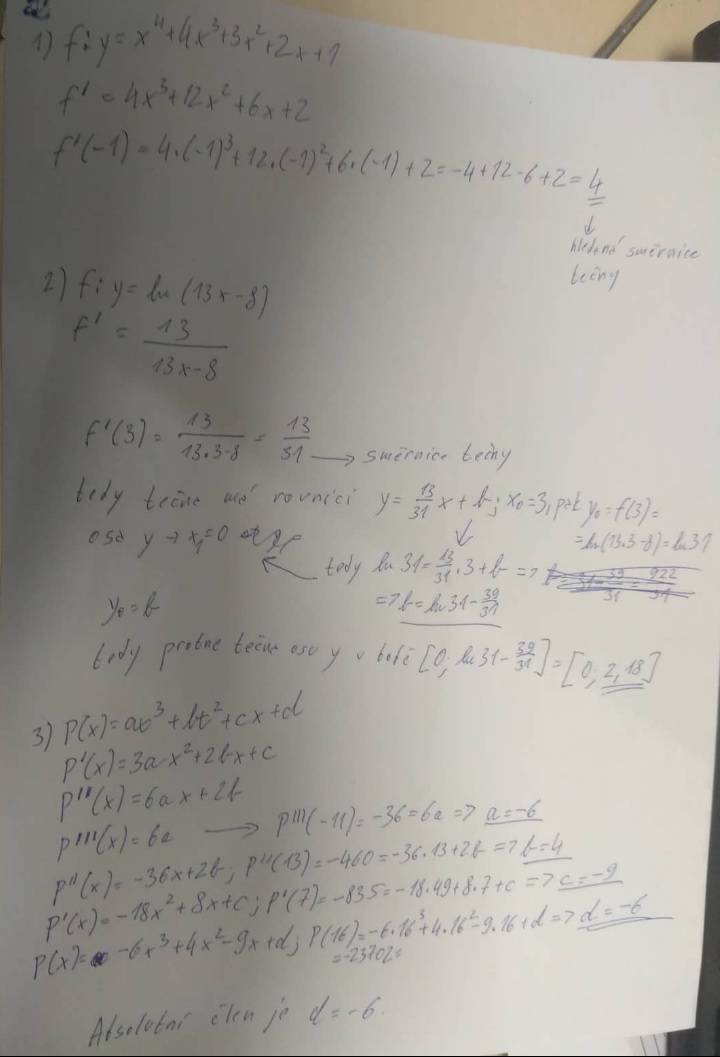 1) f: y = x⁴+4x³+3x²+2x+1
f' = 4x³+12x²+6x+2
f'(-1) = 4.(-1)³+12.(-1)²+6.(-1)+2=-4+12-6+2=4
↓
hledaná směrnice
tečny
2) f: y = ln (13x-8)
f' = 13/(13x-8)
f'(3) = 13/(13.3-8) = 13/31 → směrnice tečny
tedy tečna má rovnici y = 13/31 x + b; x₀=3, pak y₀=f(3)=
=ln(13.3-8)=ln31
osa y → x₁=0
tedy ln 31 = 13/31 . 3 + b =>
=> b = ln 31 - 39/31
y₀=b
tedy protne tečna osu y v bodě [0; ln 31 - 39/31] = [0; 2,18]
3) P(x)=ax³+bx²+cx+d
P'(x)=3ax²+2bx+c
P''(x)=6ax+2b
P'''(x)=6a → P'''(-11)=-36=6a => a=-6
P''(x)=-36x+2b; P''(13)=-460=-36.13+2b => b=4
P'(x)=-18x²+8x+c; P'(7)=-835=-18.49+8.7+c => c=-9
P(x)=-6x³+4x²-9x+d; P(16)=-6.16³+4.16²-9.16+d => d=-6
=-23702=
Absolutní člen je d=-6.